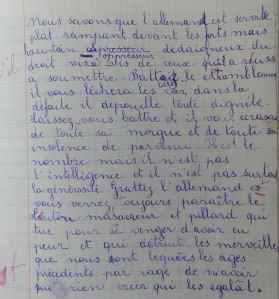 Nous savons que l'allemand est servile
plat rampant devant les forts mais
hautain oppresseur dédaigneux du
l'oppresseur
droit vis à vis de ceux qu'il a réussi
à soumettre. Battez le et
il vous lèchera les car dans la
défaite il dépouille toute dignité
laissez vous battre et il vous écrasera
de toute sa morgue et de toute son
insolence de parvenu. Il est le
nombre mais il n'est pas
l'intelligence et il n'est pas surtout
la générosité. Grattez l'allemand et
vous verrez toujours paraître le
teuton massacreur et pillard qui
tue pour se venger d'avoir eu
peur et qui détruit les merveilles
que nous sont léguées les âges
précédents par rage de n'avoir
pu rien créer qui les égalât.